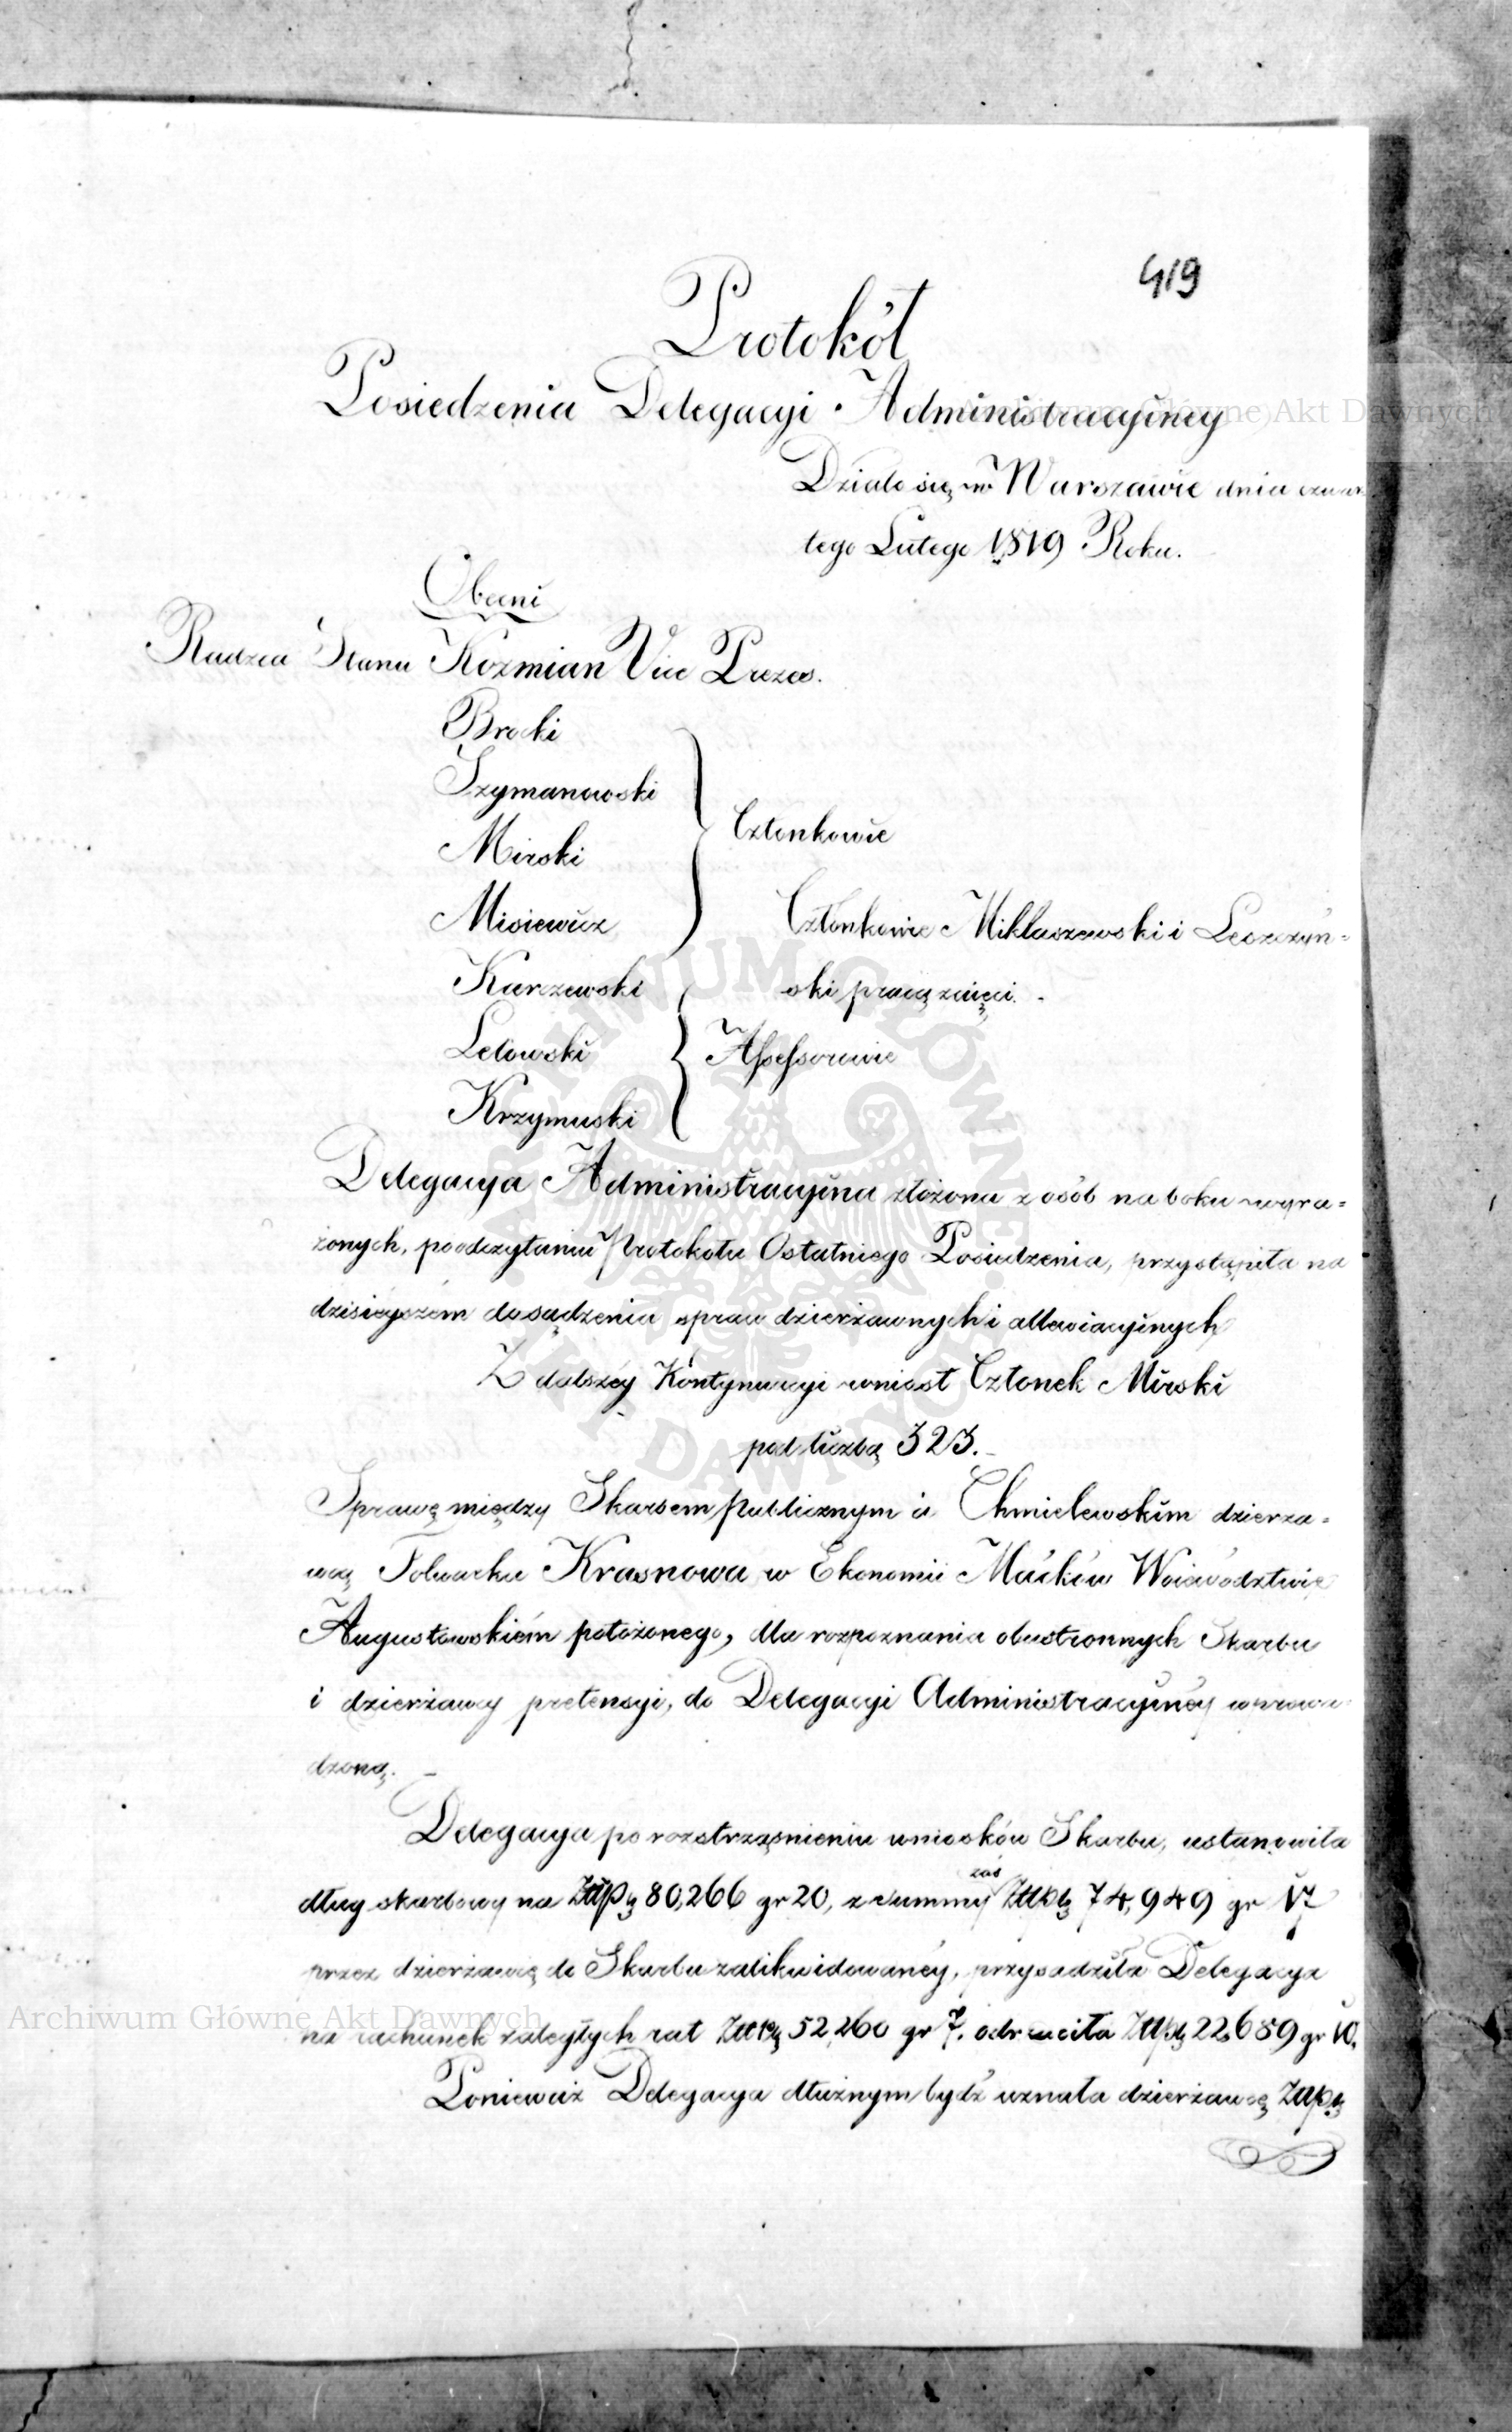 419
Protokół
Posiedzenia Delegacyi Administracyiney
Działo się w Warszawie dnia czwar
tego Lutego 1819 Roku.
Obecni
Radzca Stanu Kozmian Vice Prezes.
Brocki
Szymanowski
Mirski
Członkowie
Misiewicz
Członkowie Miklaszewski i Leszczyń=
Kurzewski
ski praca zaięci.
Letowski
Assessorowie
Krzymuski
Delegacya Administracyina złożona z osób na boku wyra=
żonych, po odczytaniu Protokołu Ostatniego Posiedzenia, przystąpiła na
dzisieyszem do sądzenia spraw dzierżawnych i allewiacyinych
Z dalszéy Kontynuacyi wniosł Członek Mirski
pod liczbą 323.
Sprawę między Skarbem publicznym a Chmielewskim dzierża=
wcą Folwarku Krasnowa w Ekonomii Maćków Woiewództwie
Augustowskiém położonego, dla rozpoznania obustronnych Skarbu
i dzierżawcy pretensyi, do Delegacyi Administracyinéy wprowa
dzoną.
Delegacya po roztrząśnieniu wniosków Skarbu, ustanowiła
dług skarbowy na Złłp 80,266 gr 20, z summy zaś Złłp 74,949 gr 17
przez dzierżawcę do Skarbu zalikwidowanéy, przysadziła Delegacya
na rachunek zaległych rat Złłp 52,260 gr 7. odrzuciła Złłp 22,689 gr 10.
Ponieważ Delegacya dłużnym bydź uznała dzierżawcę Złłp
Archiwum Główne Akt Dawnych
Archiwum Główne Akt Dawnych
ARCHIWUM GŁÓWNE AKT DAWNYCH